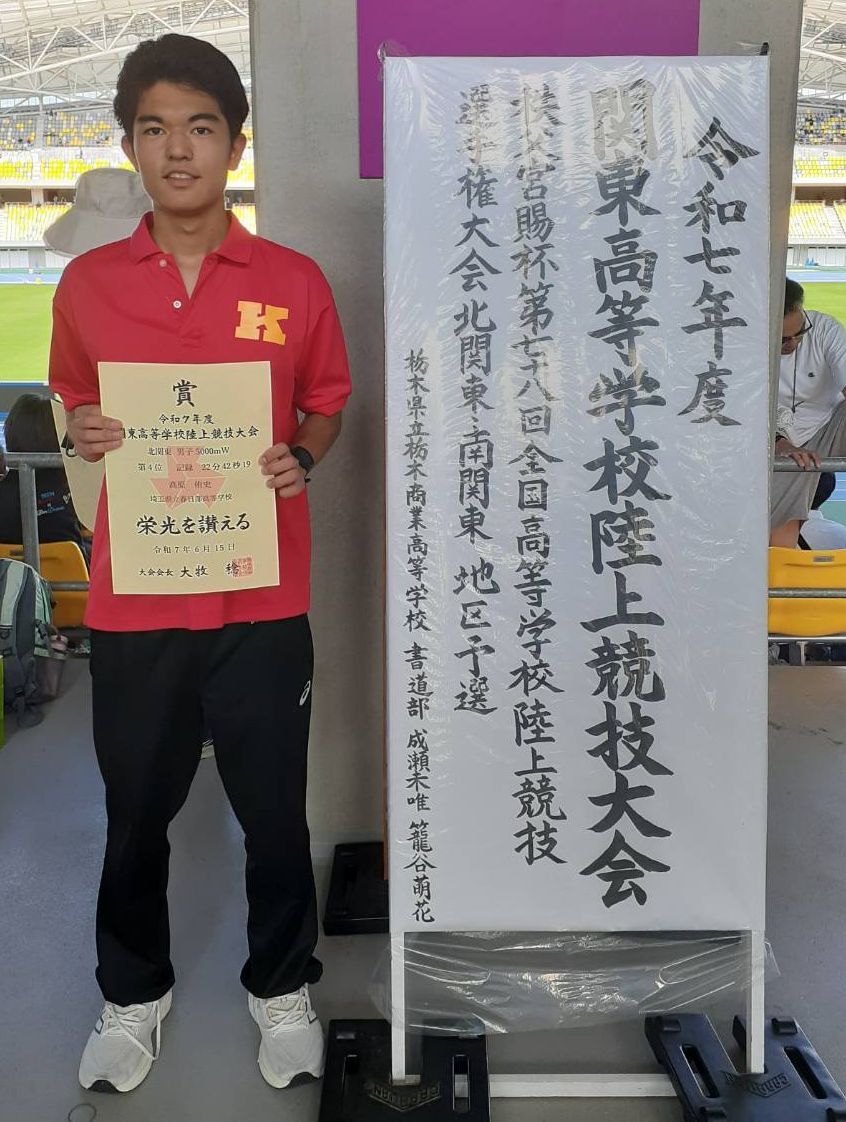 令和七年度
関東高等学校陸上競技大会
秩父宮賜杯第七十八回全国高等学校陸上競技
選手権大会北関東・南関東地区予選
栃木県立栃木商業高等学校 書道部 成瀬未唯 籠谷萌花
K
賞
令和7年度
東高等学校陸上競技大会
北関東 男子5000mW
第4位 記録 22分42秒19
高原 侑史
埼玉県立春日部高等学校
栄光を讃える
令和7年6月15日
大会会長 大牧